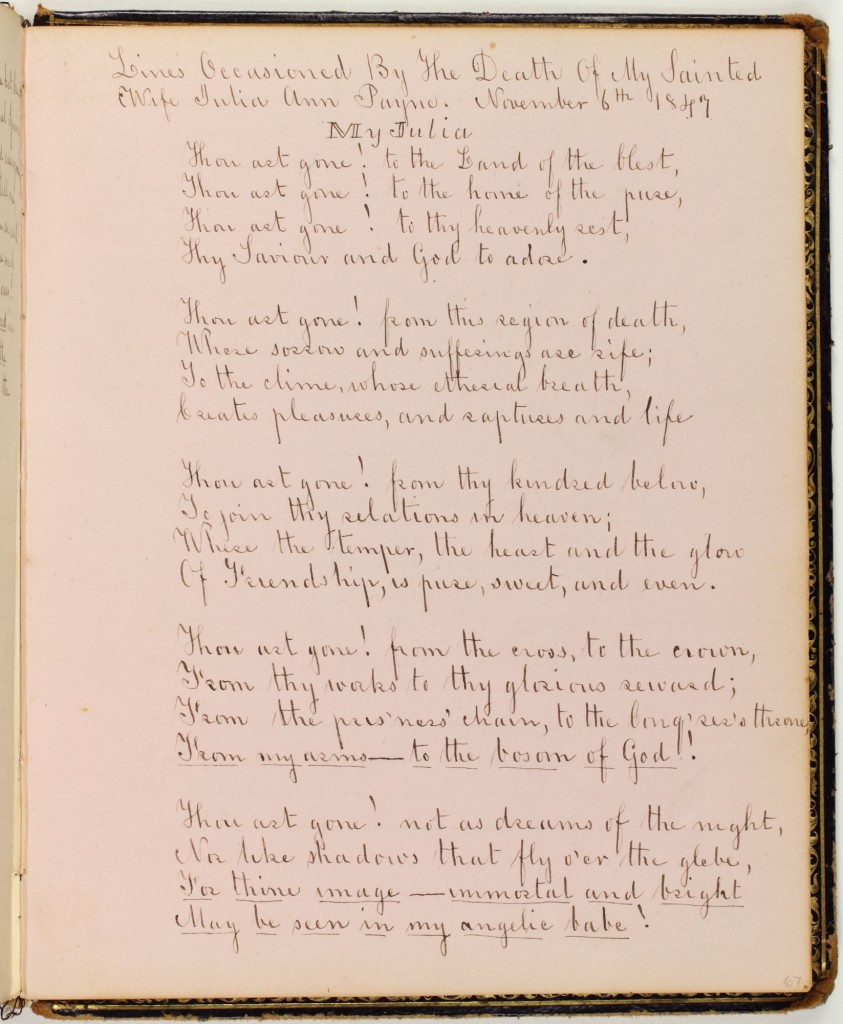 Lines Occasioned By The Death Of My Sainted
Wife Julia Ann Payne. November 6th 1847
My Julia
Thou art gone! to the Land of the blest,
Thou art gone! to the home of the pure,
Thou art gone! to thy heavenly rest,
Thy Saviour and God to adore.
Thou art gone! from this region of death,
Where sorrow and sufferings are rife;
To the clime, whose etherial breath,
Creates pleasures, and raptures and life
Thou art gone! from thy kindred below,
To join thy relations in heaven;
Where the temper, the heart and the glow
Of Friendship, is pure, sweet, and even.
Thou art gone! from the cross, to the crown,
From thy works to thy glorious reward;
From the pris'ners' chain, to the Conq'rer's throne,
From my arms—to the bosom of God!!
Thou art gone! not as dreams of the night,
Nor like shadows that fly o'er the glebe,
For thine image—immortal and bright
May be seen in my angelic babe!
67.